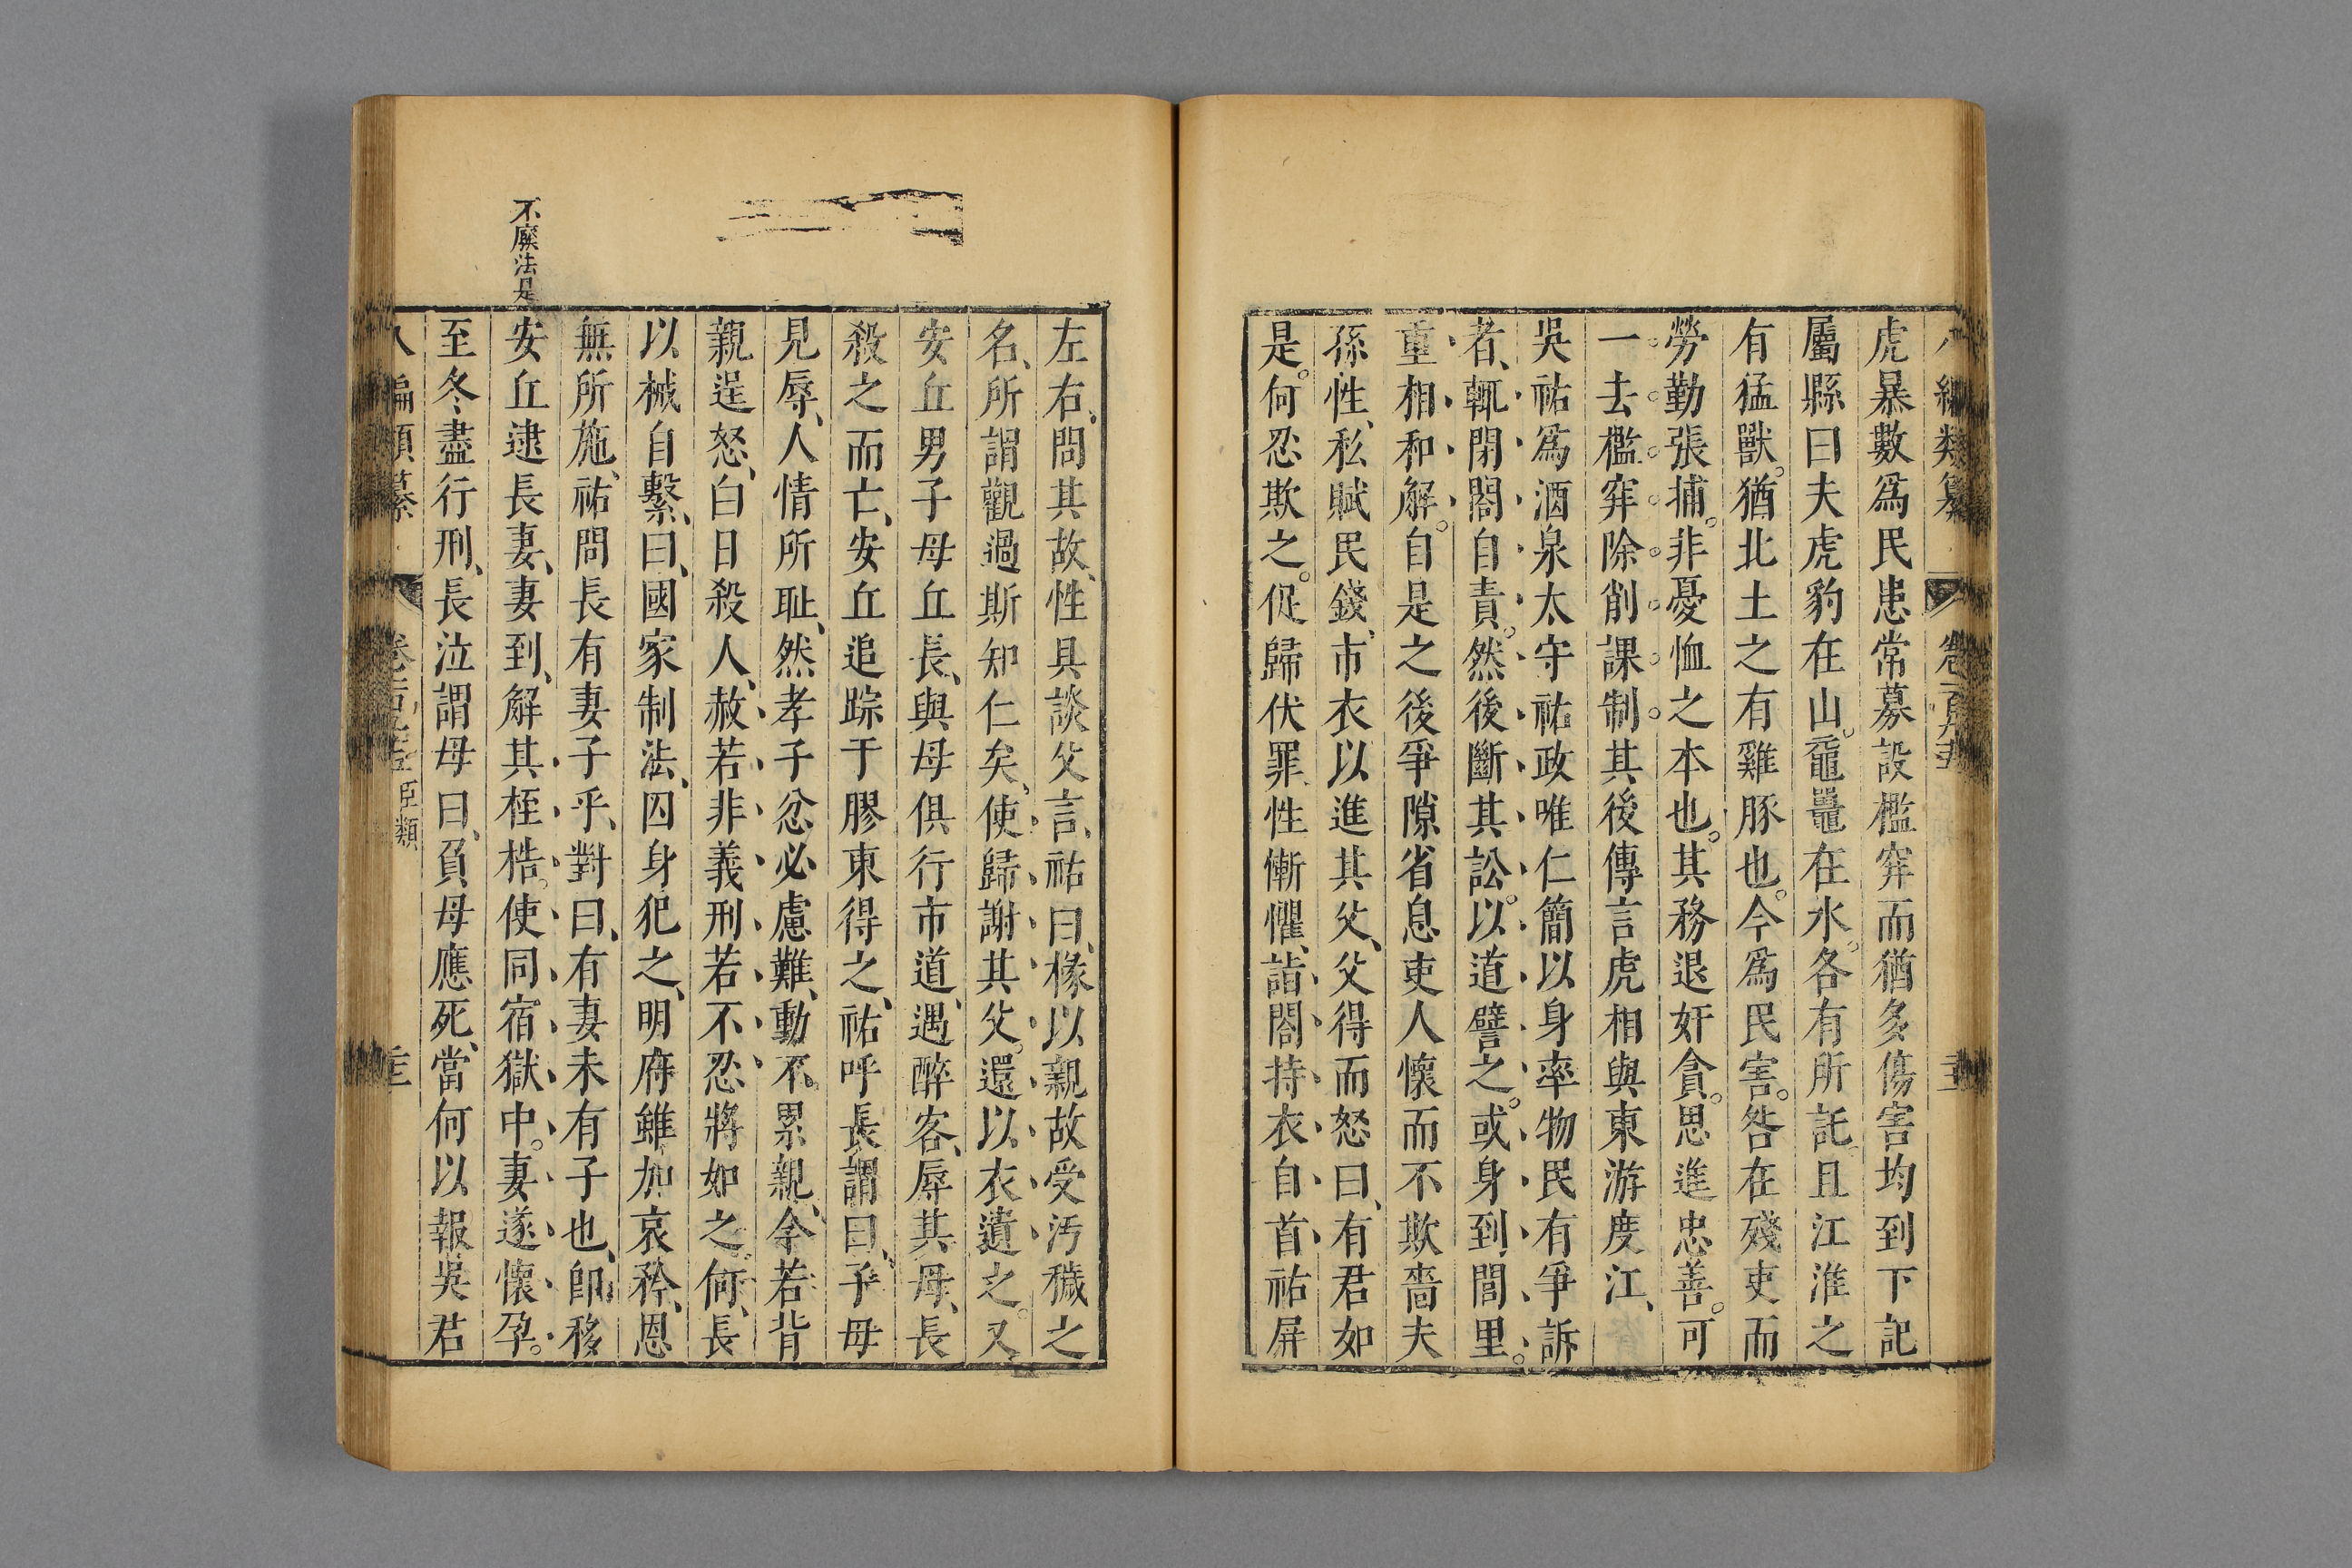 虎暴數爲民患常募設檻穽而猶多傷害均到下記
屬縣曰夫虎豹在山。黿鼉在水。各有所託。且江淮之
有猛獸。猶北土之有雞豚也。今爲民害。咎在殘吏而
勞勤張捕。非憂恤之本也。其務退奸貪。思進忠善。可
一去檻穽除削課制其後傳言虎相與東游度江、
吳祐爲酒泉太守祐政唯仁簡以身率物民有爭訴
者、輒閉閤自責。然後斷其訟。以道譬之。或身到閭里。
重相和解。自是之後爭隙省息吏人懷而不欺嗇夫
孫性、私賦民錢、市衣以進其父、父得而怒曰、有君如
是。何忍欺之。促歸伏罪、性慚懼、詣閤持衣自首祐屏
左右、問其故、性具談父言、祐曰、掾以親故受汚穢之
名、所謂觀過斯知仁矣、使歸謝其父。還以衣遺之。又
安丘男子母丘長、與母俱行市道、遇醉客、辱其母、長
殺之而亡、安丘追踪于膠東得之、祐呼長謂曰、子母
見辱、人情所耻、然孝子忿必慮難、動不累親、今若背
親逞怒、白日殺人、赦若非義刑若不忍將如之何、長
以械自繫、曰、國家制法、囚身犯之、明府雖加哀矜、恩
無所施、祐問長有妻子乎、對曰、有妻未有子也、卽移
安丘逮長妻、妻到、解其桎梏。使同宿獄中。妻遂懷孕。
至冬盡行刑、長泣謂母曰、負母應死、當何以報吳君
不廢法是
臣類